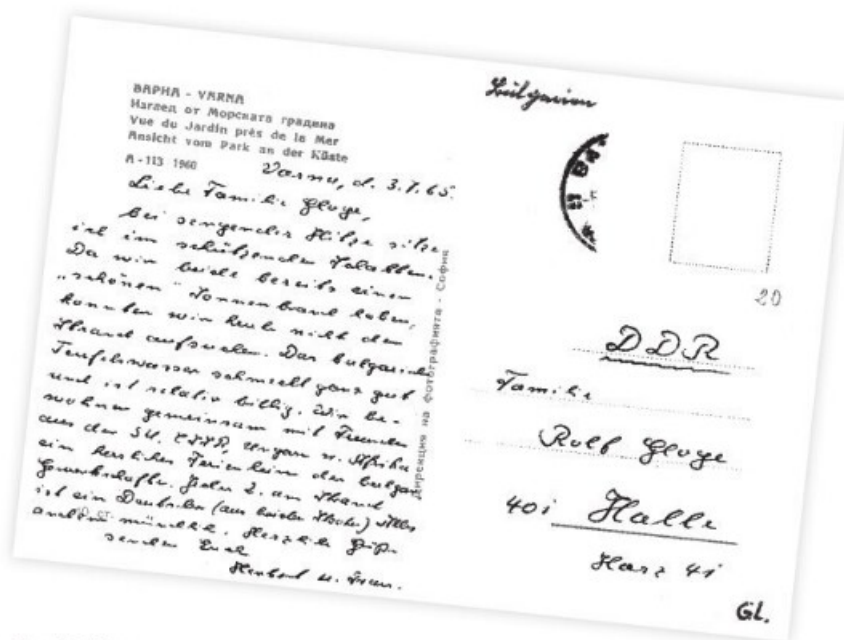 ВАРНА - VARNA
Нагдед от Морсната градина
Vue du Jardin près de la Mer
Ansicht vom Park an der Küste
А - 113 1960
Varna, d. 3.7.65.
Liebe Familie Gloge,
bei sengender Hitze sitze
ich im schützenden Schatten.
Da wir beide bereits einen
„schönen" Sonnenbrand haben,
konnten wir heute nicht den
Strand aufsuchen. Das bulgarische
Teufelswasser schmeckt ganz gut
und ist relativ billig. Wir be-
wohnen gemeinsam mit Freunden
aus der SU, ČSSR, Ungarn u. Afrika
ein herrliches Ferienheim der bulgar.
Gewerkschaften. Jeder 2. am Strand
ist ein Deutscher (aus beiden Staaten) Alles
andere mündlich. Herzliche Grüße
senden Euch
Herbert u. Frau.
Дирекция на фотографията - София
Bulgarien
ВА
20
DDR
Familie
Rolf Gloge
401 Halle
Harz 41
GL.